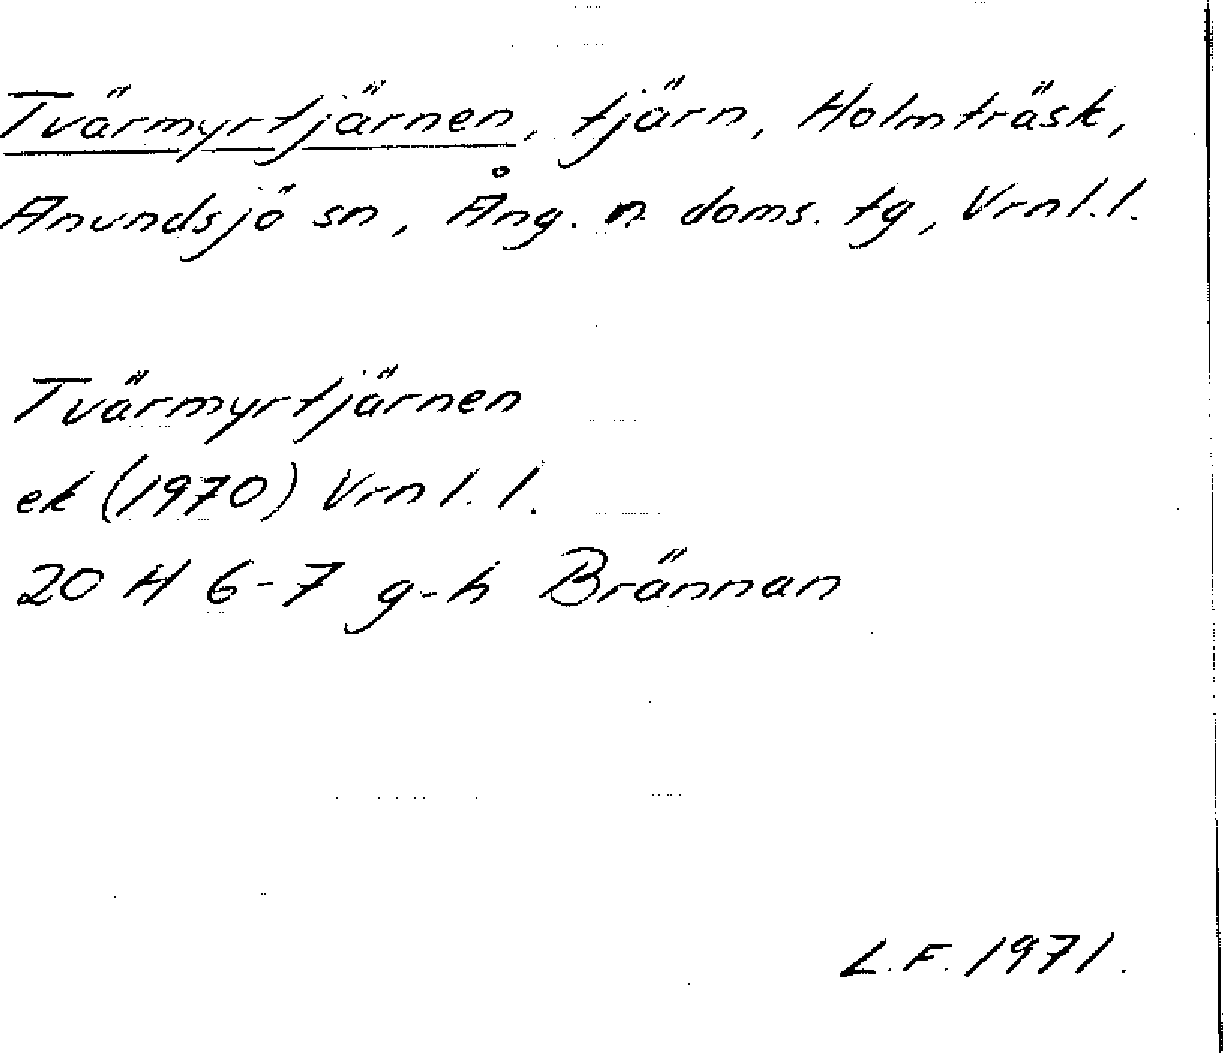 Tvärmyrtjärnen, tjärn, Holmträsk,
Anundsjö sn, Ång. n. doms. tg, Vrnl.l.
Tvärmyrtjärnen
ek (1970) Vrnl.l.
20 H 6-7 g-h Brännan
L.F. 1971.